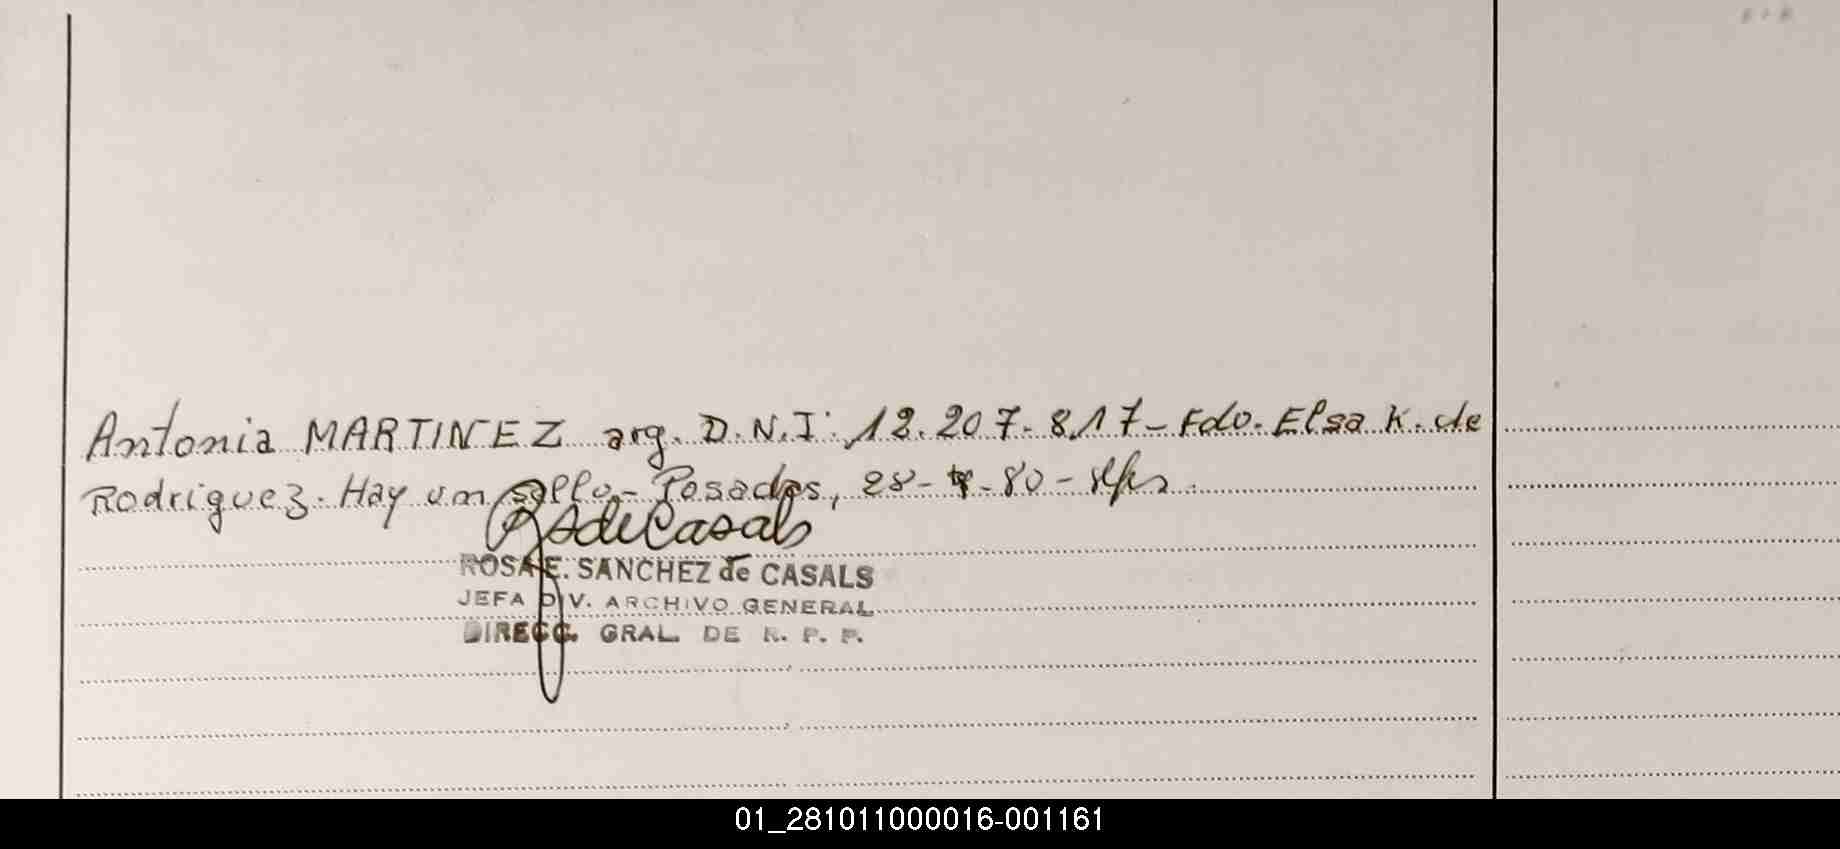 Antonia MARTINEZ arg. D.N.I: 12.207.817- Fdo. Elsa K. de
Rodriguez. Hay un sello.- Posadas, 28- -80-
RSdeCasals
ROSA E. SANCHEZ de CASALS
JEFA DIV. ARCHIVO GENERAL
DIRECC. GRAL. DE R. P. P.
01_281011000016-001161